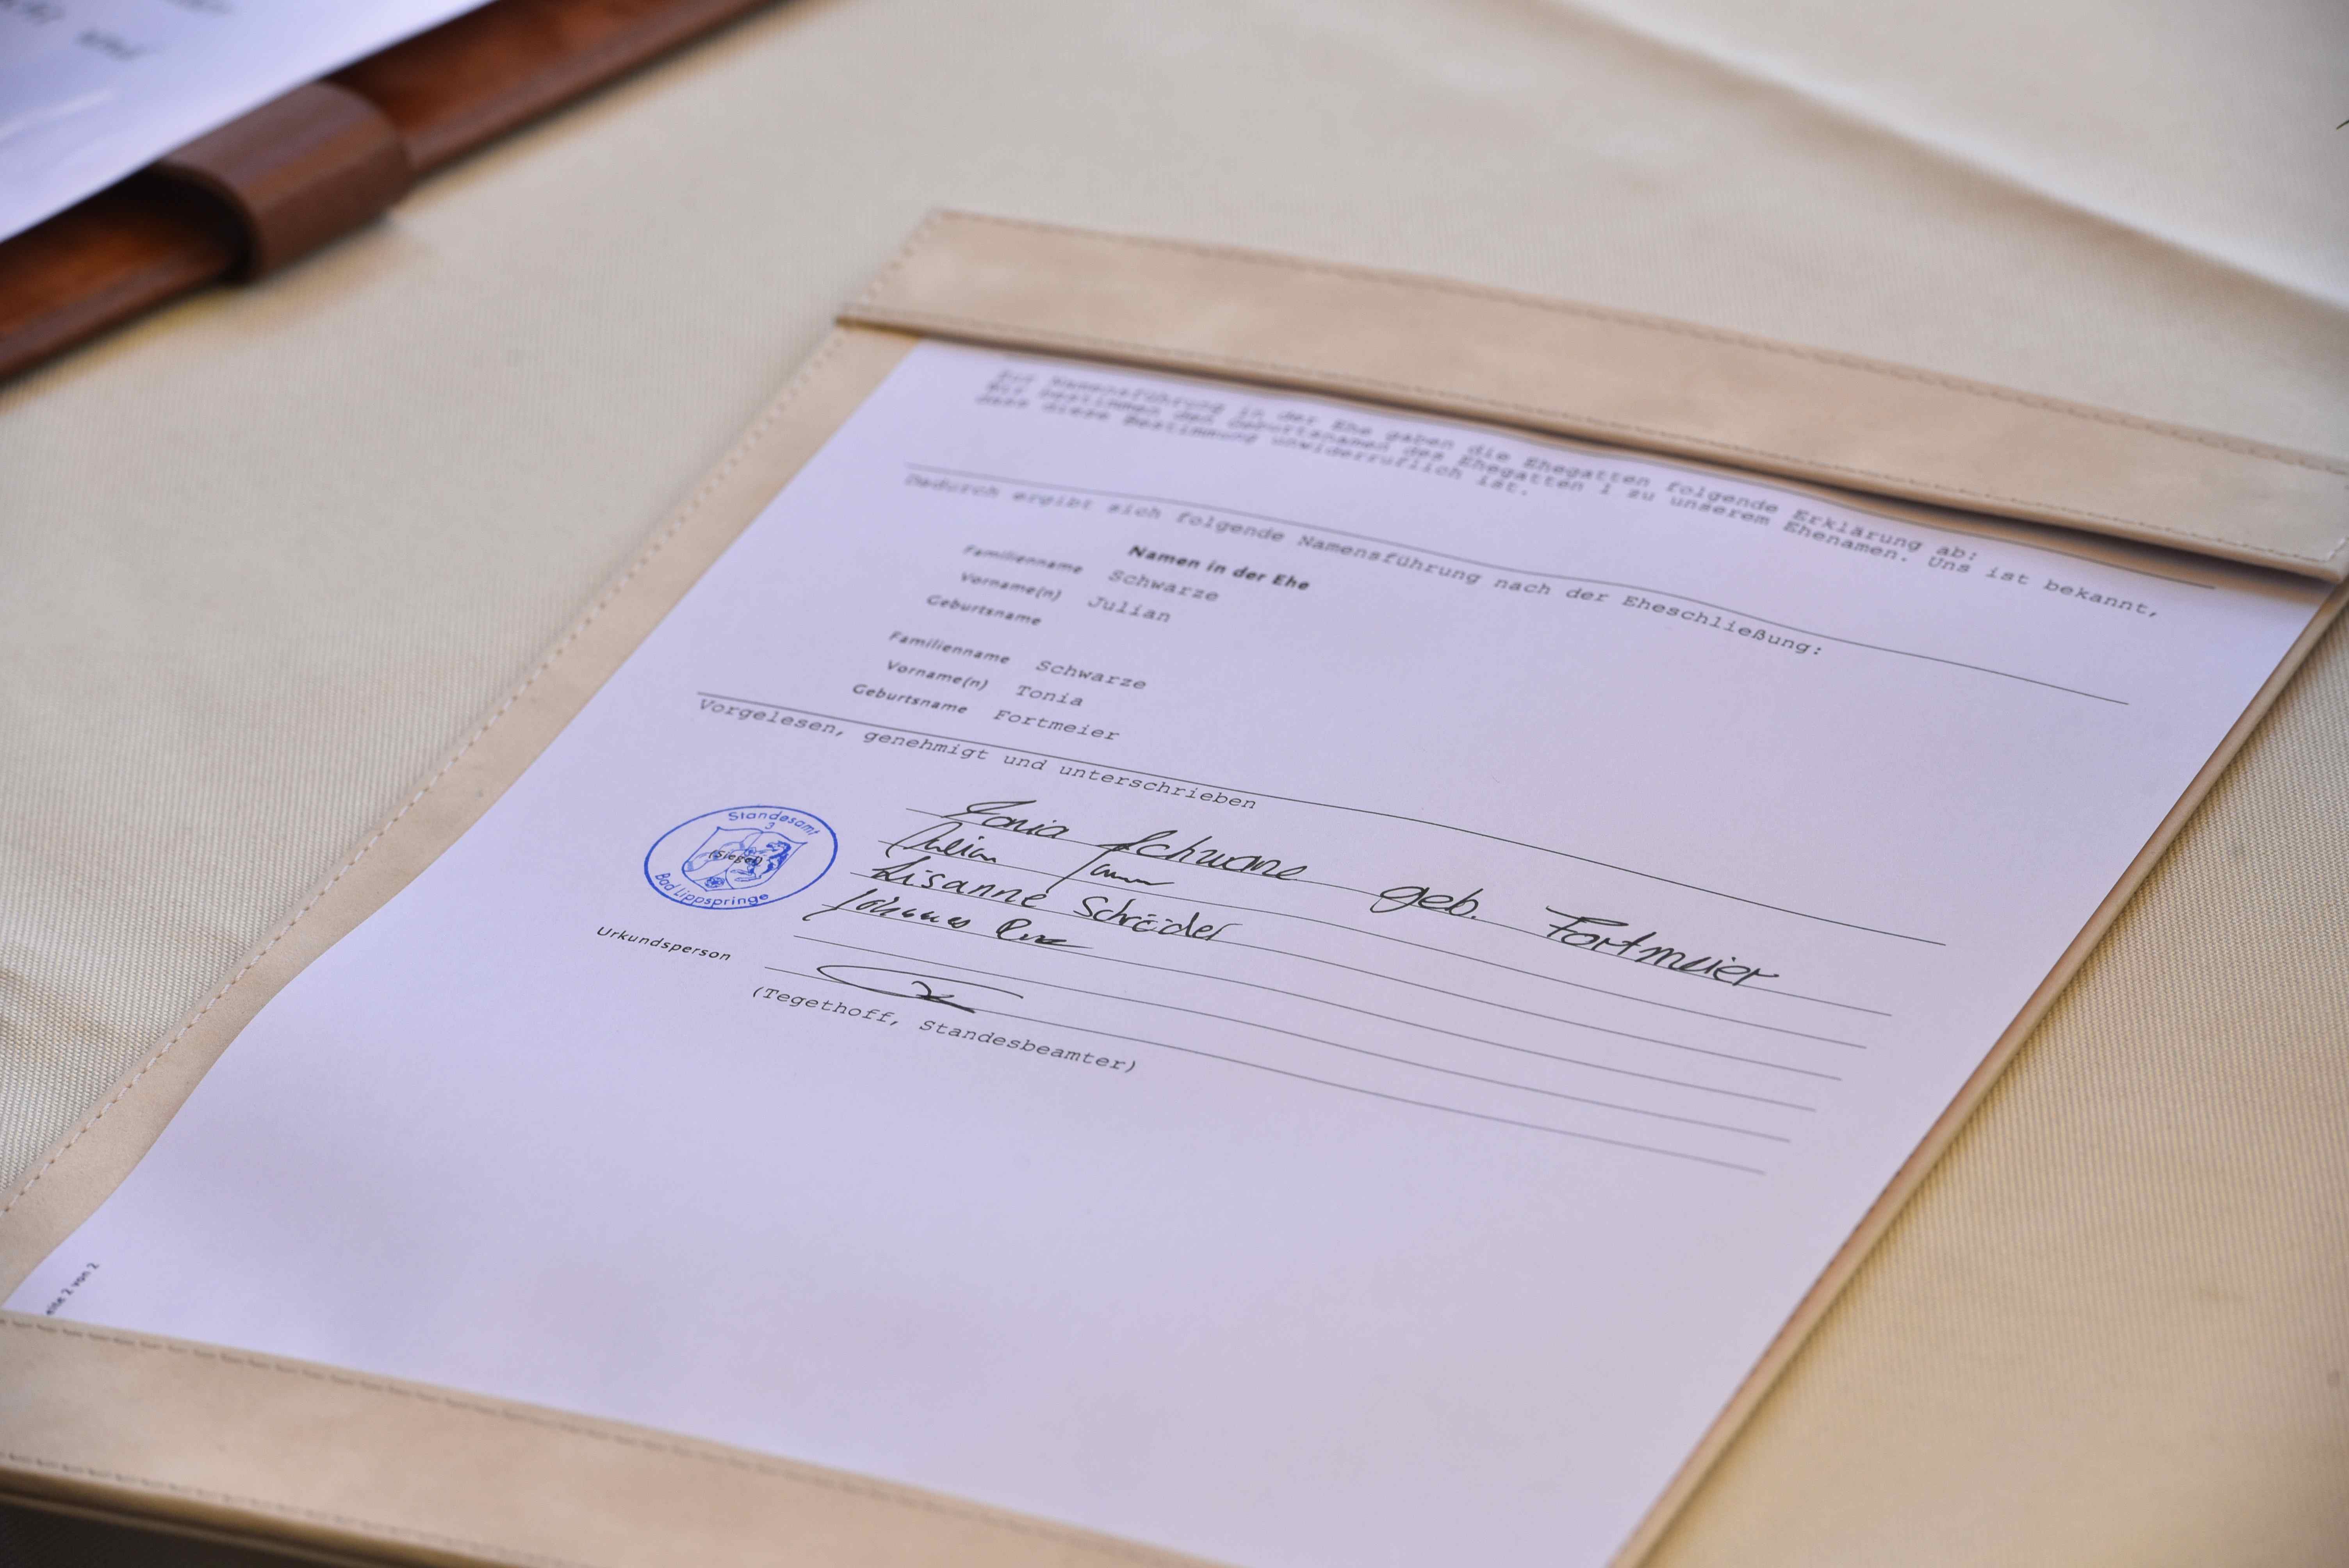 Zur Namensführung in der Ehe gaben die Ehegatten folgende Erklärung ab:
Wir bestimmen den Geburtsnamen des Ehegatten 1 zu unserem Ehenamen. Uns ist bekannt,
dass diese Bestimmung unwiderruflich ist.
Dadurch ergibt sich folgende Namensführung nach der Eheschließung:
Namen in der Ehe
Familienname Schwarze
Vorname(n) Julian
Geburtsname
Familienname Schwarze
Vorname(n) Tonia
Geburtsname Fortmeier
Vorgelesen, genehmigt und unterschrieben
Standesamt
3
(Siegel)
Bad Lippspringe
Tonia Schwarze geb. Fortmeier
Lisanne Schröder
Johannes
Urkundsperson
(Tegethoff, Standesbeamter)
eite 2 von 2
und